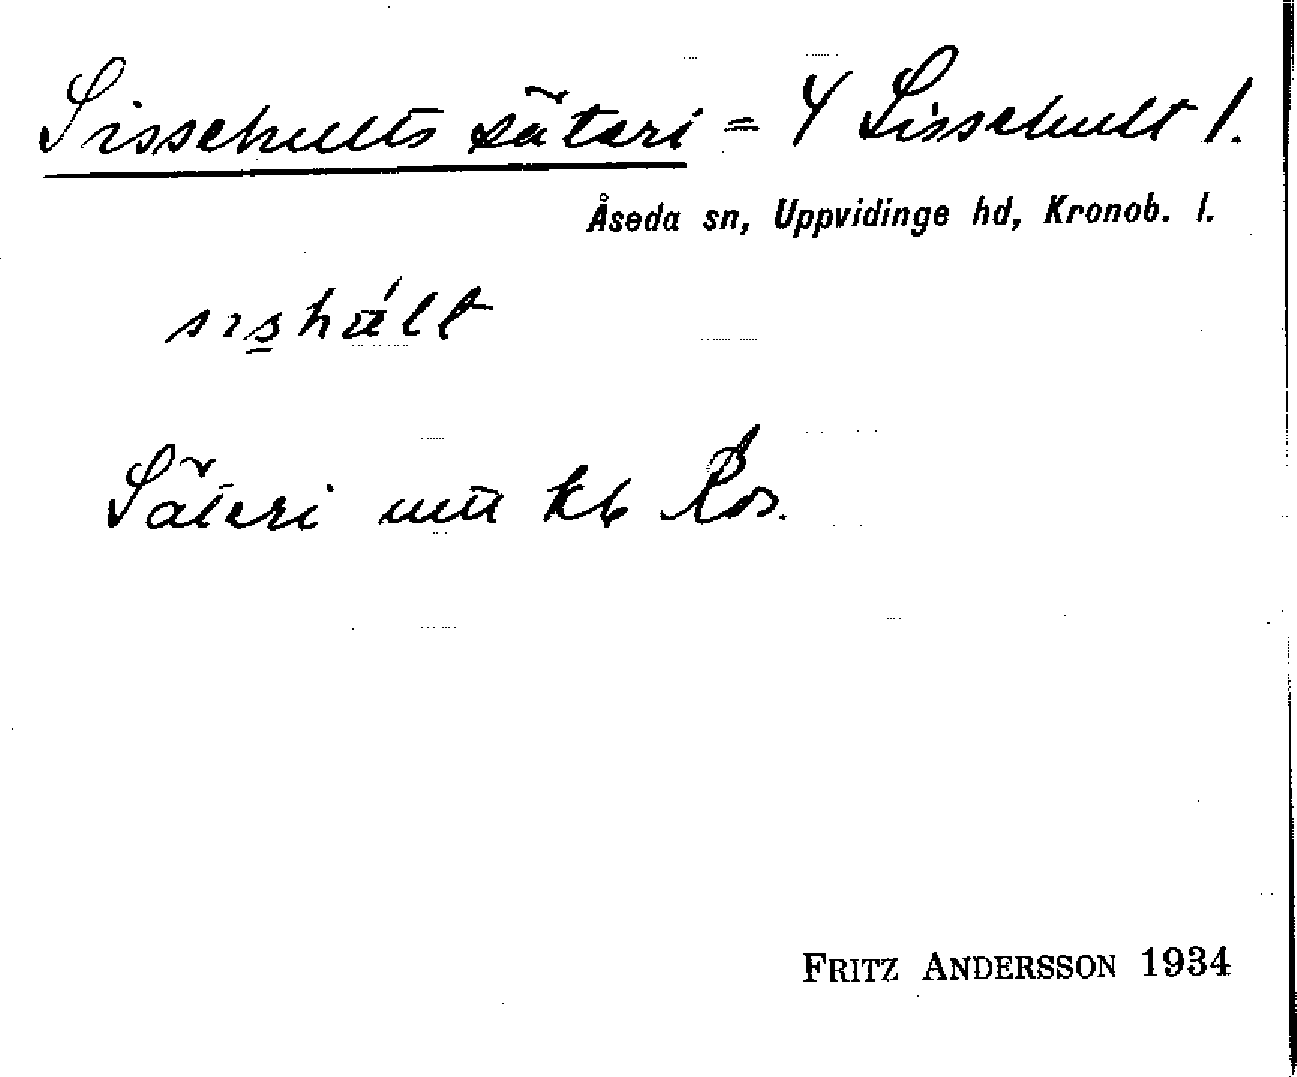 Sissehults säteri = Y Sissehult 1.
Åseda sn, Uppvidinge hd, Kronob. l.
sishált
Säteri utá kb
FRITZ ANDERSSON 1934